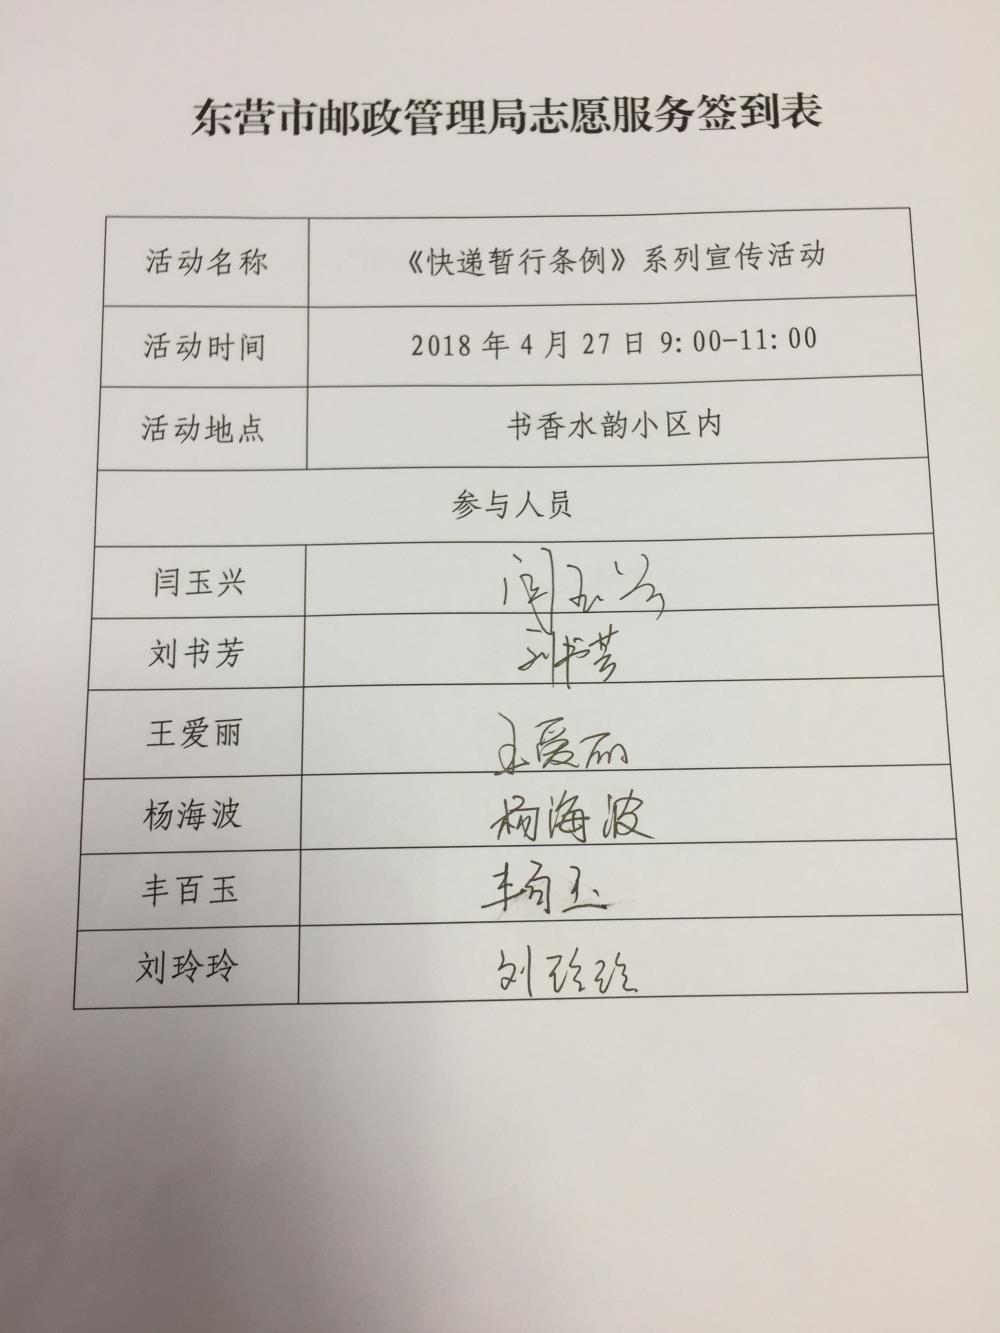 东营市邮政管理局志愿服务签到表
活动名称 《快递暂行条例》系列宣传活动
活动时间 2018年4月27日 9:00-11:00
活动地点 书香水韵小区内
参与人员
闫玉兴 闫玉兴
刘书芳 刘书芳
王爱丽 王爱丽
杨海波 杨海波
丰百玉 丰百玉
刘玲玲 刘玲玲